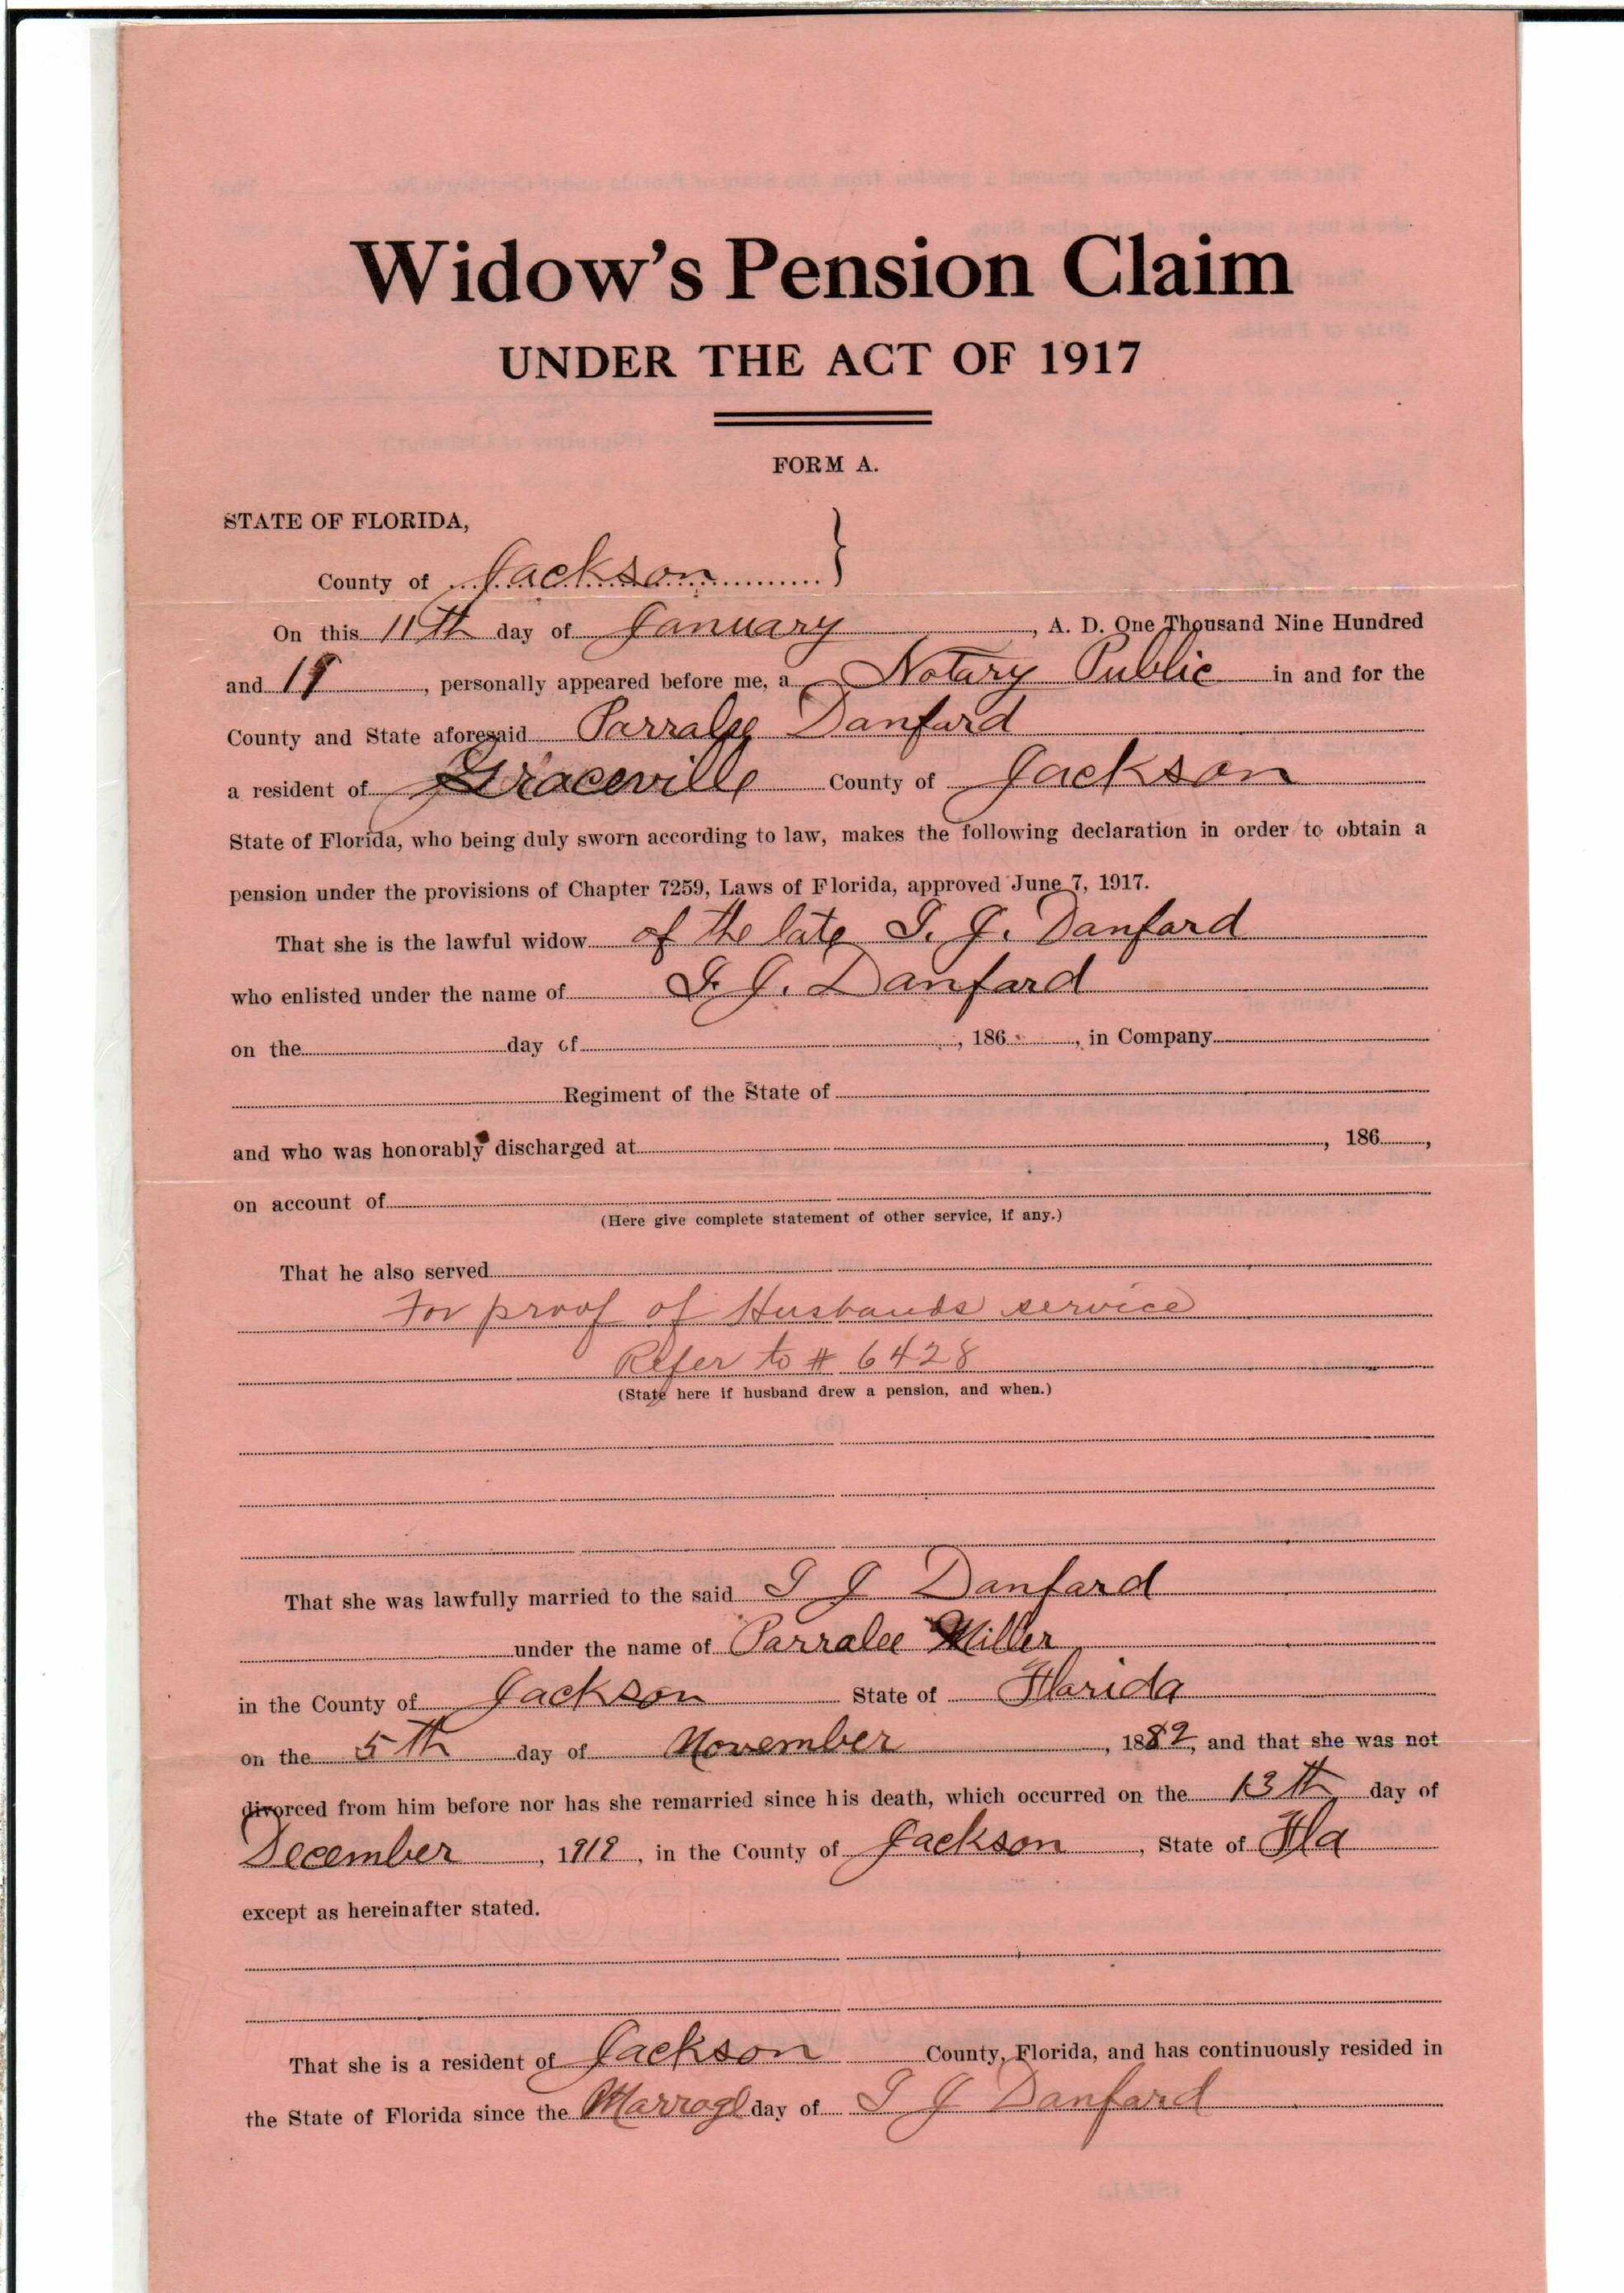 Widow's Pension Claim
UNDER THE ACT OF 1917
FORM A.
STATE OF FLORIDA,
County of Jackson
On this 11th day of January, A. D. One Thousand Nine Hundred
and 19, personally appeared before me, a Notary Public in and for the
County and State aforesaid Parralee Danford
a resident of Graceville County of Jackson
State of Florida, who being duly sworn according to law, makes the following declaration in order to obtain a
pension under the provisions of Chapter 7259, Laws of Florida, approved June 7, 1917.
That she is the lawful widow of the late J. Danford
who enlisted under the name of J. Danford
on the day of , 186 , in Company
Regiment of the State of
and who was honorably discharged at , 186 ,
on account of
(Here give complete statement of other service, if any.)
That he also served
For proof of Husbands service
Refer to # 6428
(State here if husband drew a pension, and when.)
That she was lawfully married to the said J Danford
under the name of Parralee Miller
in the County of Jackson State of Florida
on the 5th day of November, 1882, and that she was not
divorced from him before nor has she remarried since his death, which occurred on the 13th day of
December, 1918, in the County of Jackson, State of Fla
except as hereinafter stated.
That she is a resident of Jackson County, Florida, and has continuously resided in
the State of Florida since the Marrage day of J Danford